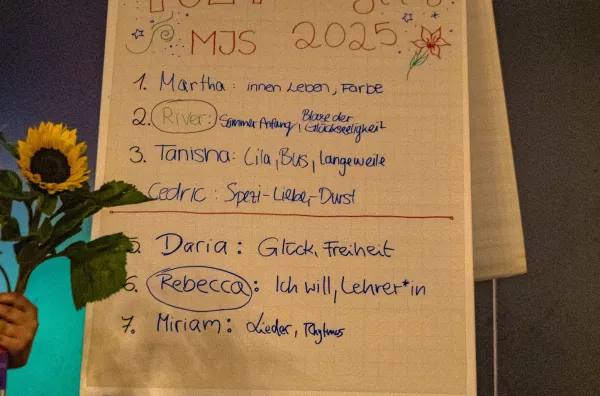 MJS 2025
1. Martha: innen Leben, Farbe
2. River: Sommer Anfang, Blase der Glückseeligkeit
3. Tanisha: Lila, Bus, langeweile
Cedric: Spezi-Lieber-Durst
5. Daria: Glück, Freiheit
6. Rebecca: Ich will, Lehrer*in
7. Miriam: Lieder, Rhytmus